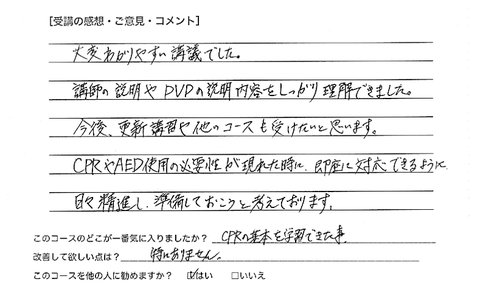 ［受講の感想・ご意見・コメント］
大変わかりやすい講議でした。
講師の説明やDVDの説明内容をしっかり理解できました。
今後、更新講習や他のコースも受けたいと思います。
CPRやAED使用の必要性が現れた時に、即座に対応できるように
日々精進し、準備しておこうと考えております。
このコースのどこが一番気に入りましたか？ CPRの基本を学習できた事
改善して欲しい点は？ 特にありません。
このコースを他の人に勧めますか？ ☑はい □いいえ